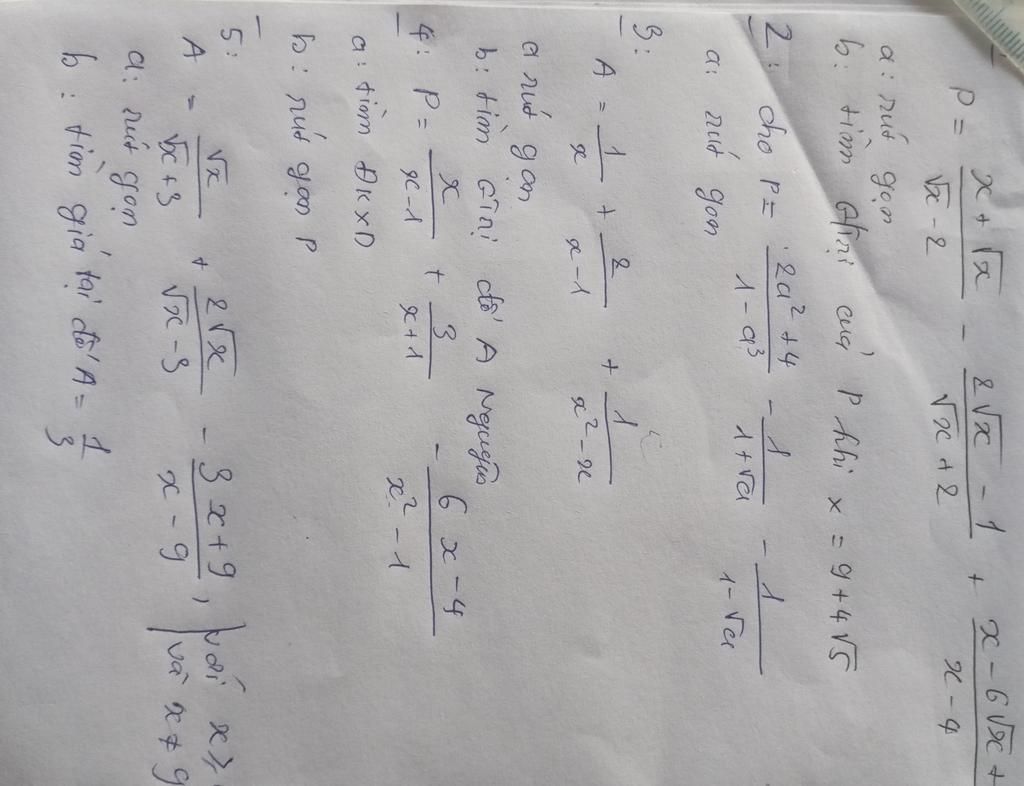 P = \frac{x + \sqrt{x}}{\sqrt{x} - 2} - \frac{2\sqrt{x} - 1}{\sqrt{x} + 2} + \frac{x - 6\sqrt{x} +}{x - 4}
a: rút gọn
b: tìm gtrị của P khi x = 9 + 4\sqrt{5}
2: cho P = \frac{2a^2 + 4}{1 - a^3} - \frac{1}{1 + \sqrt{a}} - \frac{1}{1 - \sqrt{a}}
a: rút gọn
3:
A = \frac{1}{x} + \frac{2}{x - 1} + \frac{1}{x^2 - x}
a rút gọn
b: tìm gtrị để A nguyên
4: P = \frac{x}{x - 1} + \frac{3}{x + 1} - \frac{6x - 4}{x^2 - 1}
a: tìm ĐKXD
b: rút gọn P
5:
A = \frac{\sqrt{x}}{\sqrt{x} + 3} + \frac{2\sqrt{x}}{\sqrt{x} - 3} - \frac{3x + 9}{x - 9}, với x ≥
và x ≠ 9
a: rút gọn
b: tìm giá tại để A = \frac{1}{3}